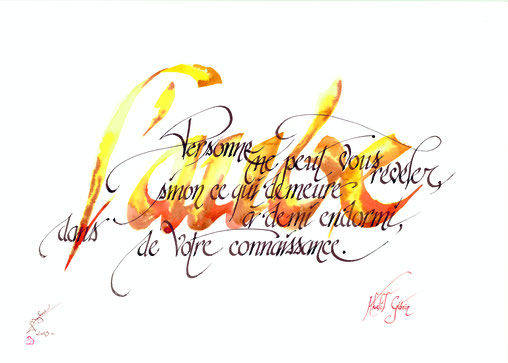 l'aube
Personne ne peut vous révéler,
sinon ce qui demeure
à demi endormi,
dans de votre connaissance.
Khalil Gibran